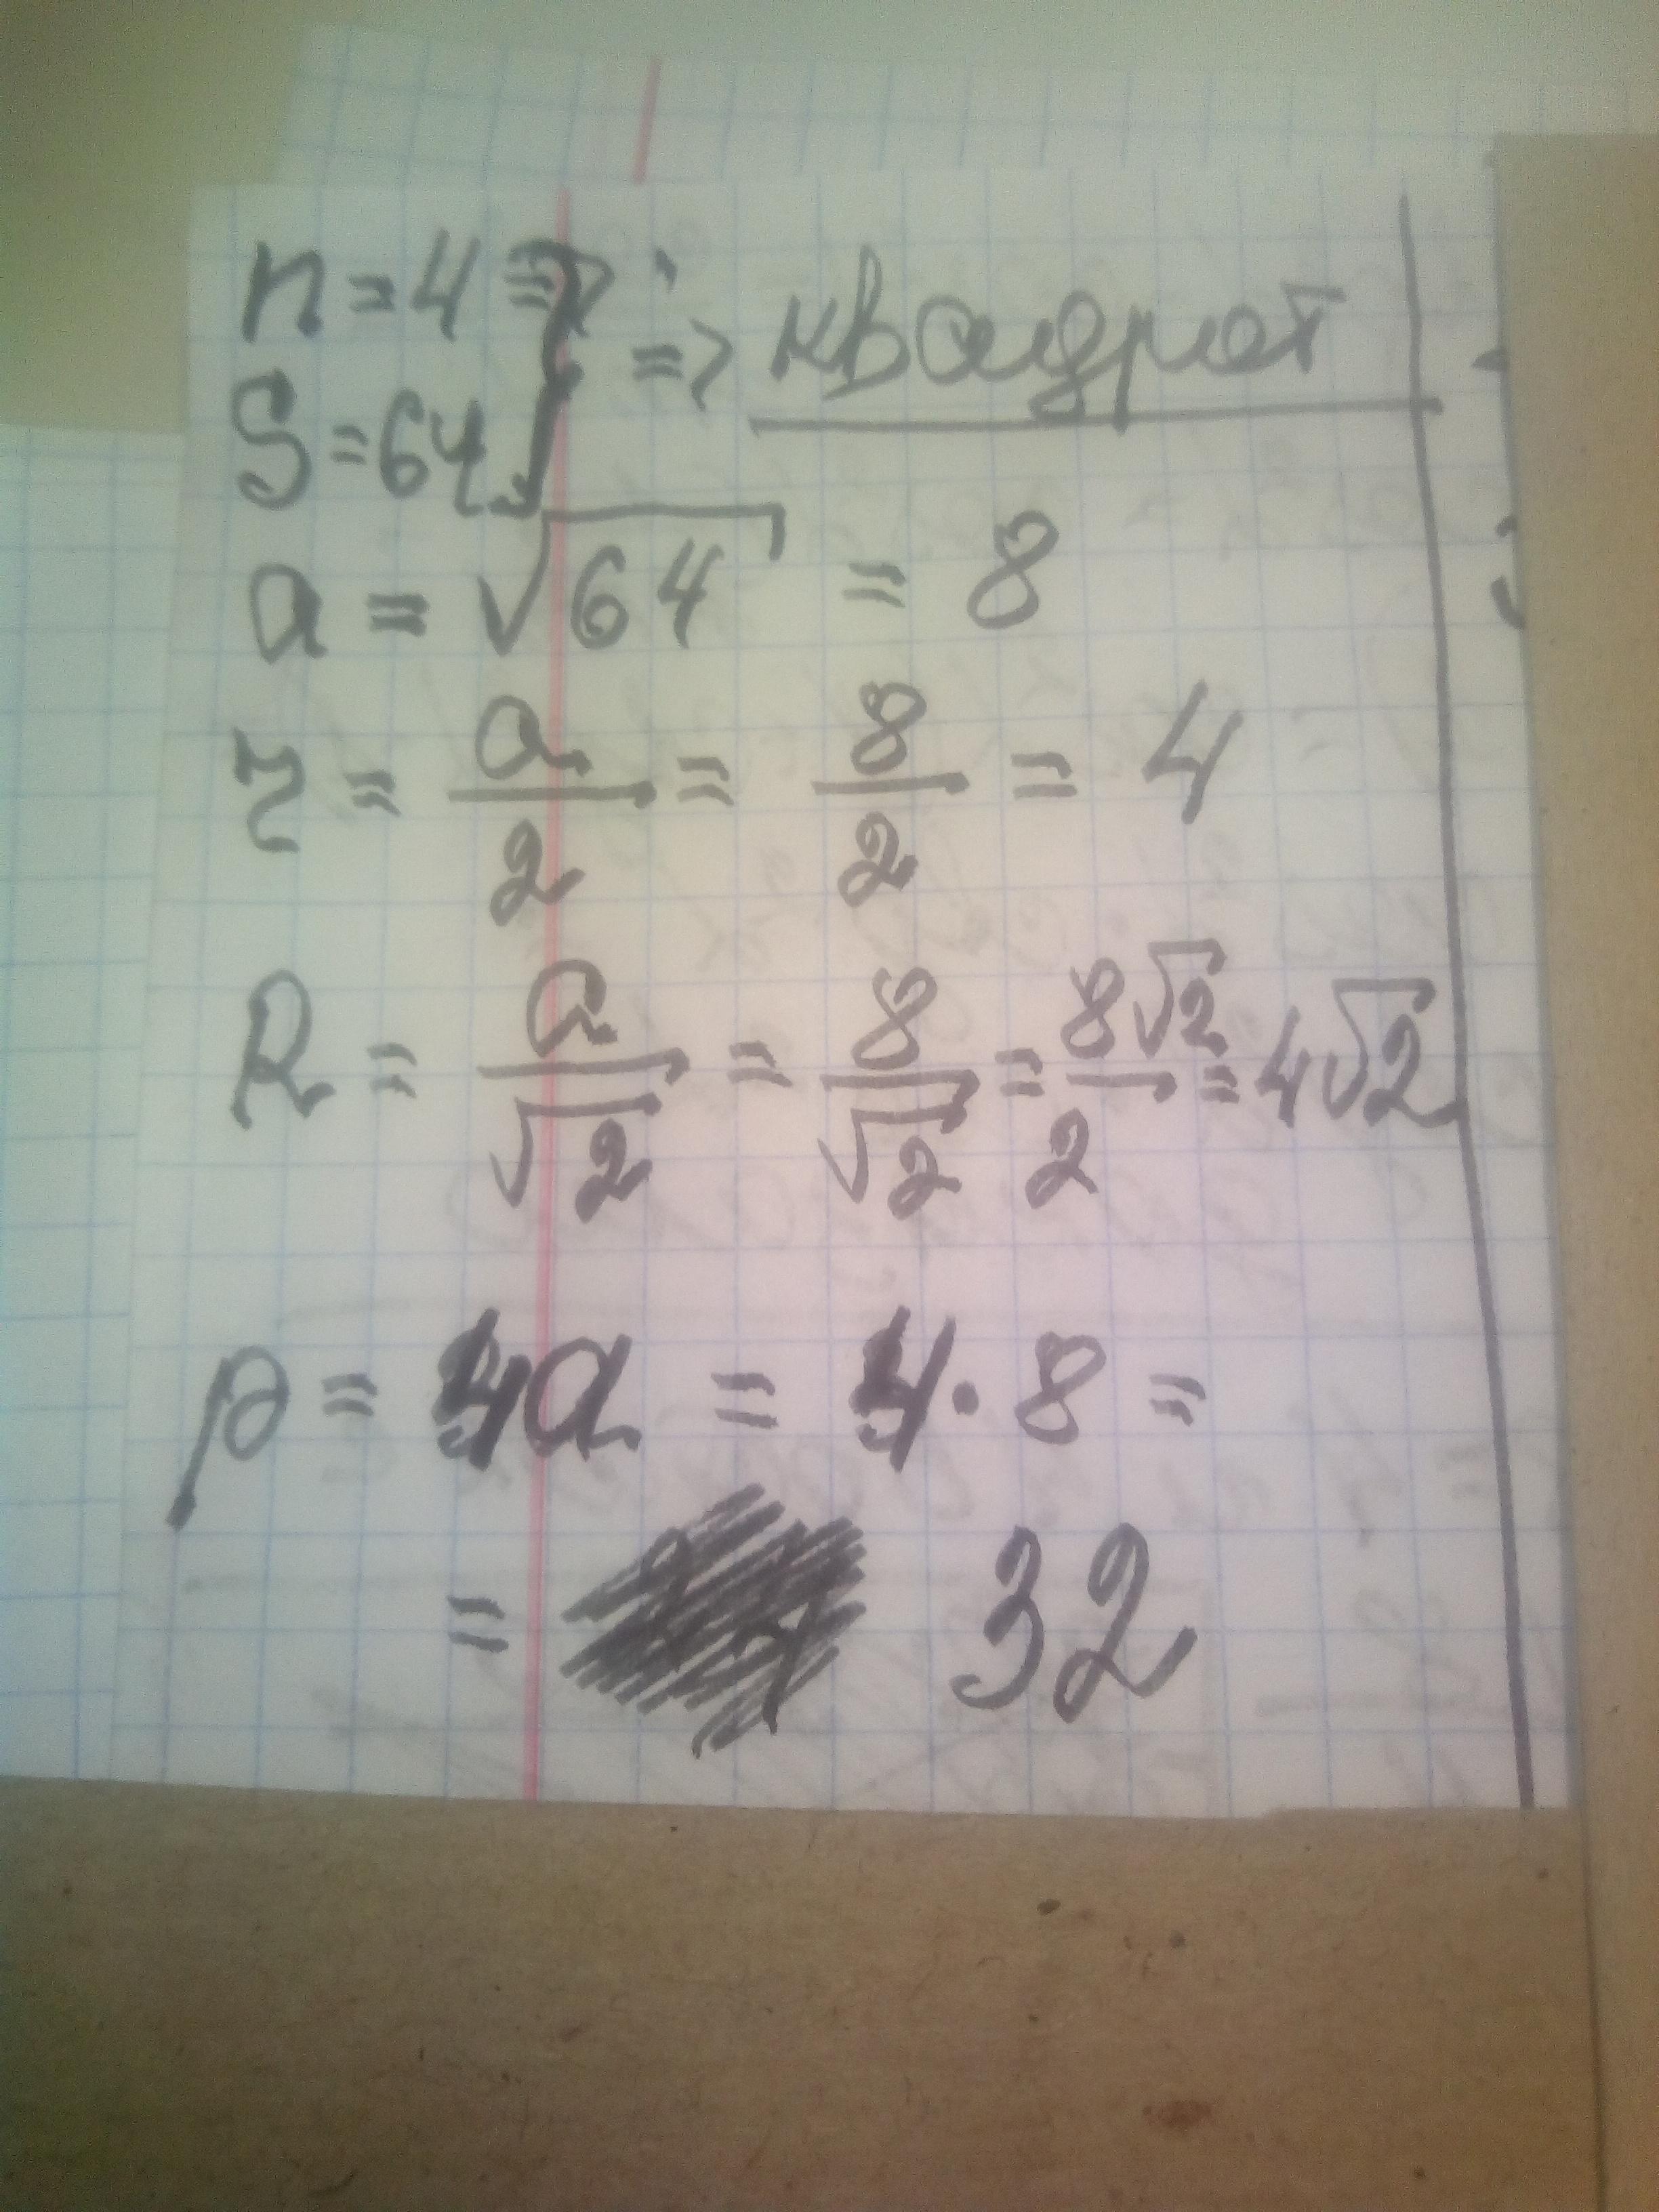 n = 4 =>
S = 64 } => квадрат
a = √64 = 8
r = a/2 = 8/2 = 4
R = a/√2 = 8/√2 = 8√2/2 = 4√2
p = 4a = 4 · 8 =
= 32